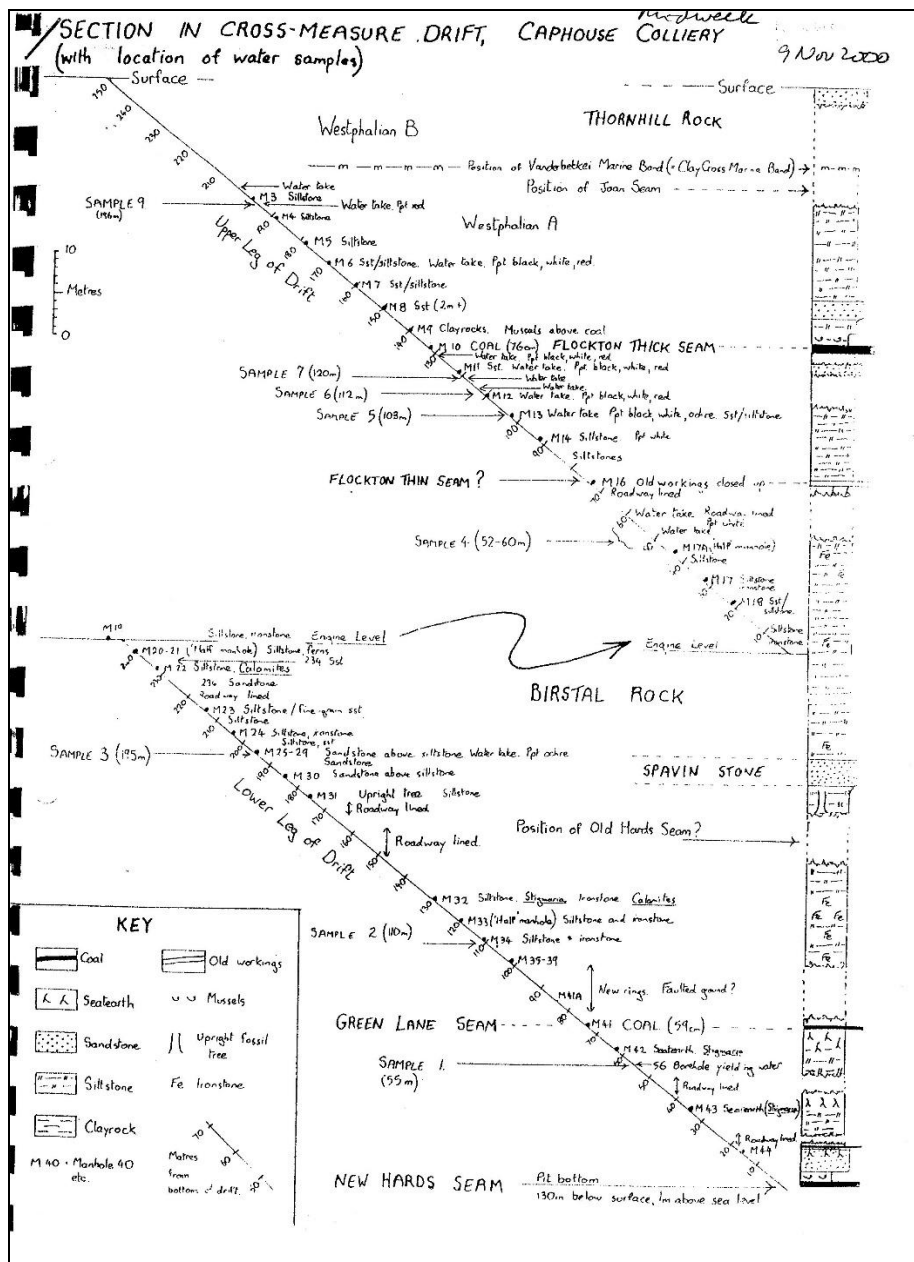 Midweek
SECTION IN CROSS-MEASURE DRIFT, CAPHOUSE COLLIERY
(with location of water samples)
9 Nov 2000
Surface
Surface
250
240
230
220
210
Westphalian B
THORNHILL ROCK
Position of Vanderbeckei Marine Band (= Clay Cross Marine Band)
Position of Joan Seam
Water take
M3 Siltstone
SAMPLE 9
(196m)
Water take. Ppt red
M4 Siltstone
Westphalian A
Upper Leg of Drift
190
M5 Siltstone
180
M6 Sst/siltstone. Water take. Ppt black, white, red.
170
M7 Sst/siltstone
160
M8 Sst (2m+)
150
M9 Clayrocks. Mussels above coal
140
M10 COAL (76cm) FLOCKTON THICK SEAM
130
Water take. Ppt black, white, red
M11 Sst. Water take. Ppt black, white, red
SAMPLE 7 (120m)
Water take
Water take
SAMPLE 6 (112m)
M12 Water take. Ppt black, white, red
SAMPLE 5 (103m)
M13 Water take Ppt black, white, ochre. Sst/siltstone
100
M14 Siltstone Ppt white
90
Siltstones
FLOCKTON THIN SEAM?
M16 Old workings closed up
70
Roadway lined
60
Water take. Roadway lined
Ppt white
Water take
SAMPLE 4. (52-60m)
M17A ('Half' manhole)
Siltstone
M17 Siltstone
Ironstone
M18 Sst/
siltstone
20
10
Siltstone
Ironstone
10
Metres
0
M19
Siltstone, ironstone
Engine Level
Engine Level
M20-21 ('Half' manhole) Siltstone, ferns
234 Sst
240
M22 Siltstone, Calamites
230
236 Sandstone
Roadway lined
220
BIRSTAL ROCK
M23 Siltstone / fine-grain sst
Siltstone
210
M24 Siltstone, ironstone
Siltstone, sst
200
SAMPLE 3 (195m)
M25-29 Sandstone above siltstone Water take. Ppt ochre
Sandstone
190
M30 Sandstone above siltstone
SPAVIN STONE
180
M31 Upright tree Siltstone
Roadway lined
170
Lower Leg of Drift
Position of Old Hards Seam?
160
Roadway lined.
150
140
M32 Siltstone. Stigmaria Ironstone Calamites
130
M33 ('Half' manhole) Siltstone and ironstone
120
SAMPLE 2 (110m)
M34 Siltstone + ironstone
110
M35-39
100
New rings. Faulted ground?
90
M41A
80
GREEN LANE SEAM
M41 COAL (59cm)
70
M42 Seatearth. Stigmaria
SAMPLE 1.
(55m)
56 Borehole yielding water
50
Roadway lined
40
M43 Seatearth (Stigmaria)
30
Roadway lined
20
M44
10
NEW HARDS SEAM
Pit bottom
130m below surface, 1m above sea level
KEY
Coal
Old workings
Seatearth
Mussels
Sandstone
Upright fossil
tree
Siltstone
Fe Ironstone
Clayrock
M 40 · Manhole 40
etc.
70
60
50
Metres
from
bottom of drift.
m m m
Fe
Fe
Fe
Fe
Fe
Fe Fe
Fe
Fe